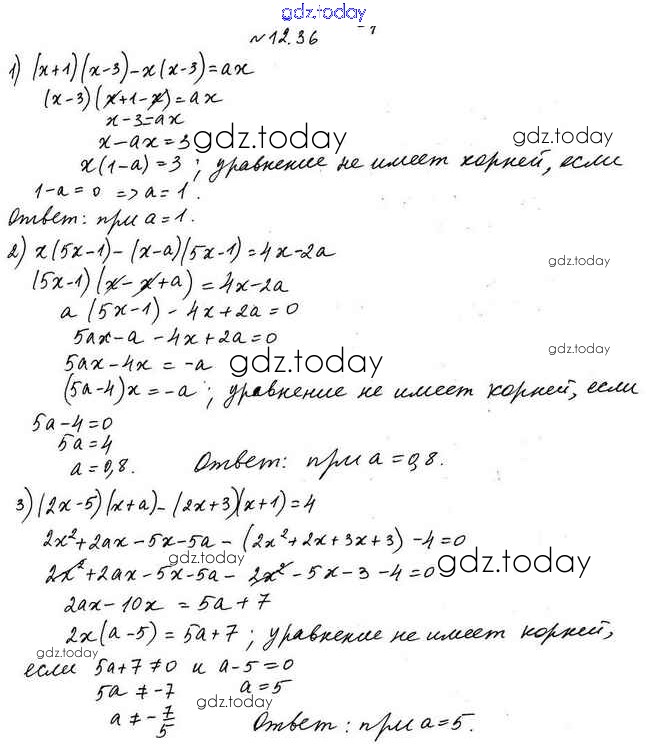 gdz.today
№12.36
1) (x+1)(x-3)-x(x-3)=ax
(x-3)(x+1-x)=ax
x-3=ax
x-ax=3 gdz.today gdz.today
x(1-a)=3; уравнение не имеет корней, если
1-a=0 => a=1.
Ответ: при a=1.
2) x(5x-1)-(x-a)(5x-1)=4x-2a
gdz.today
(5x-1)(x-x+a)=4x-2a
a(5x-1)-4x+2a=0
5ax-a-4x+2a=0
gdz.today
5ax-4x=-a gdz.today
(5a-4)x=-a; уравнение не имеет корней, если
5a-4=0
5a=4
a=0,8. Ответ: при a=0,8.
3) (2x-5)(x+a)-(2x+3)(x+1)=4
2x²+2ax-5x-5a-(2x²+2x+3x+3)-4=0
gdz.today gdz.today
2x²+2ax-5x-5a-2x²-5x-3-4=0
2ax-10x=5a+7
2x(a-5)=5a+7; уравнение не имеет корней,
gdz.today
если 5a+7≠0 и a-5=0
5a≠-7 a=5
gdz.today
a≠-7/5 Ответ: при a=5.